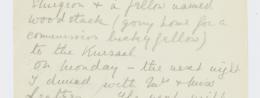 Sturgeon & a fellow named
Woodstock (going home for a
commission lucky fellow)
to the Kursaal
On Monday – the next night
I dined with Mrs & Miss
The next night